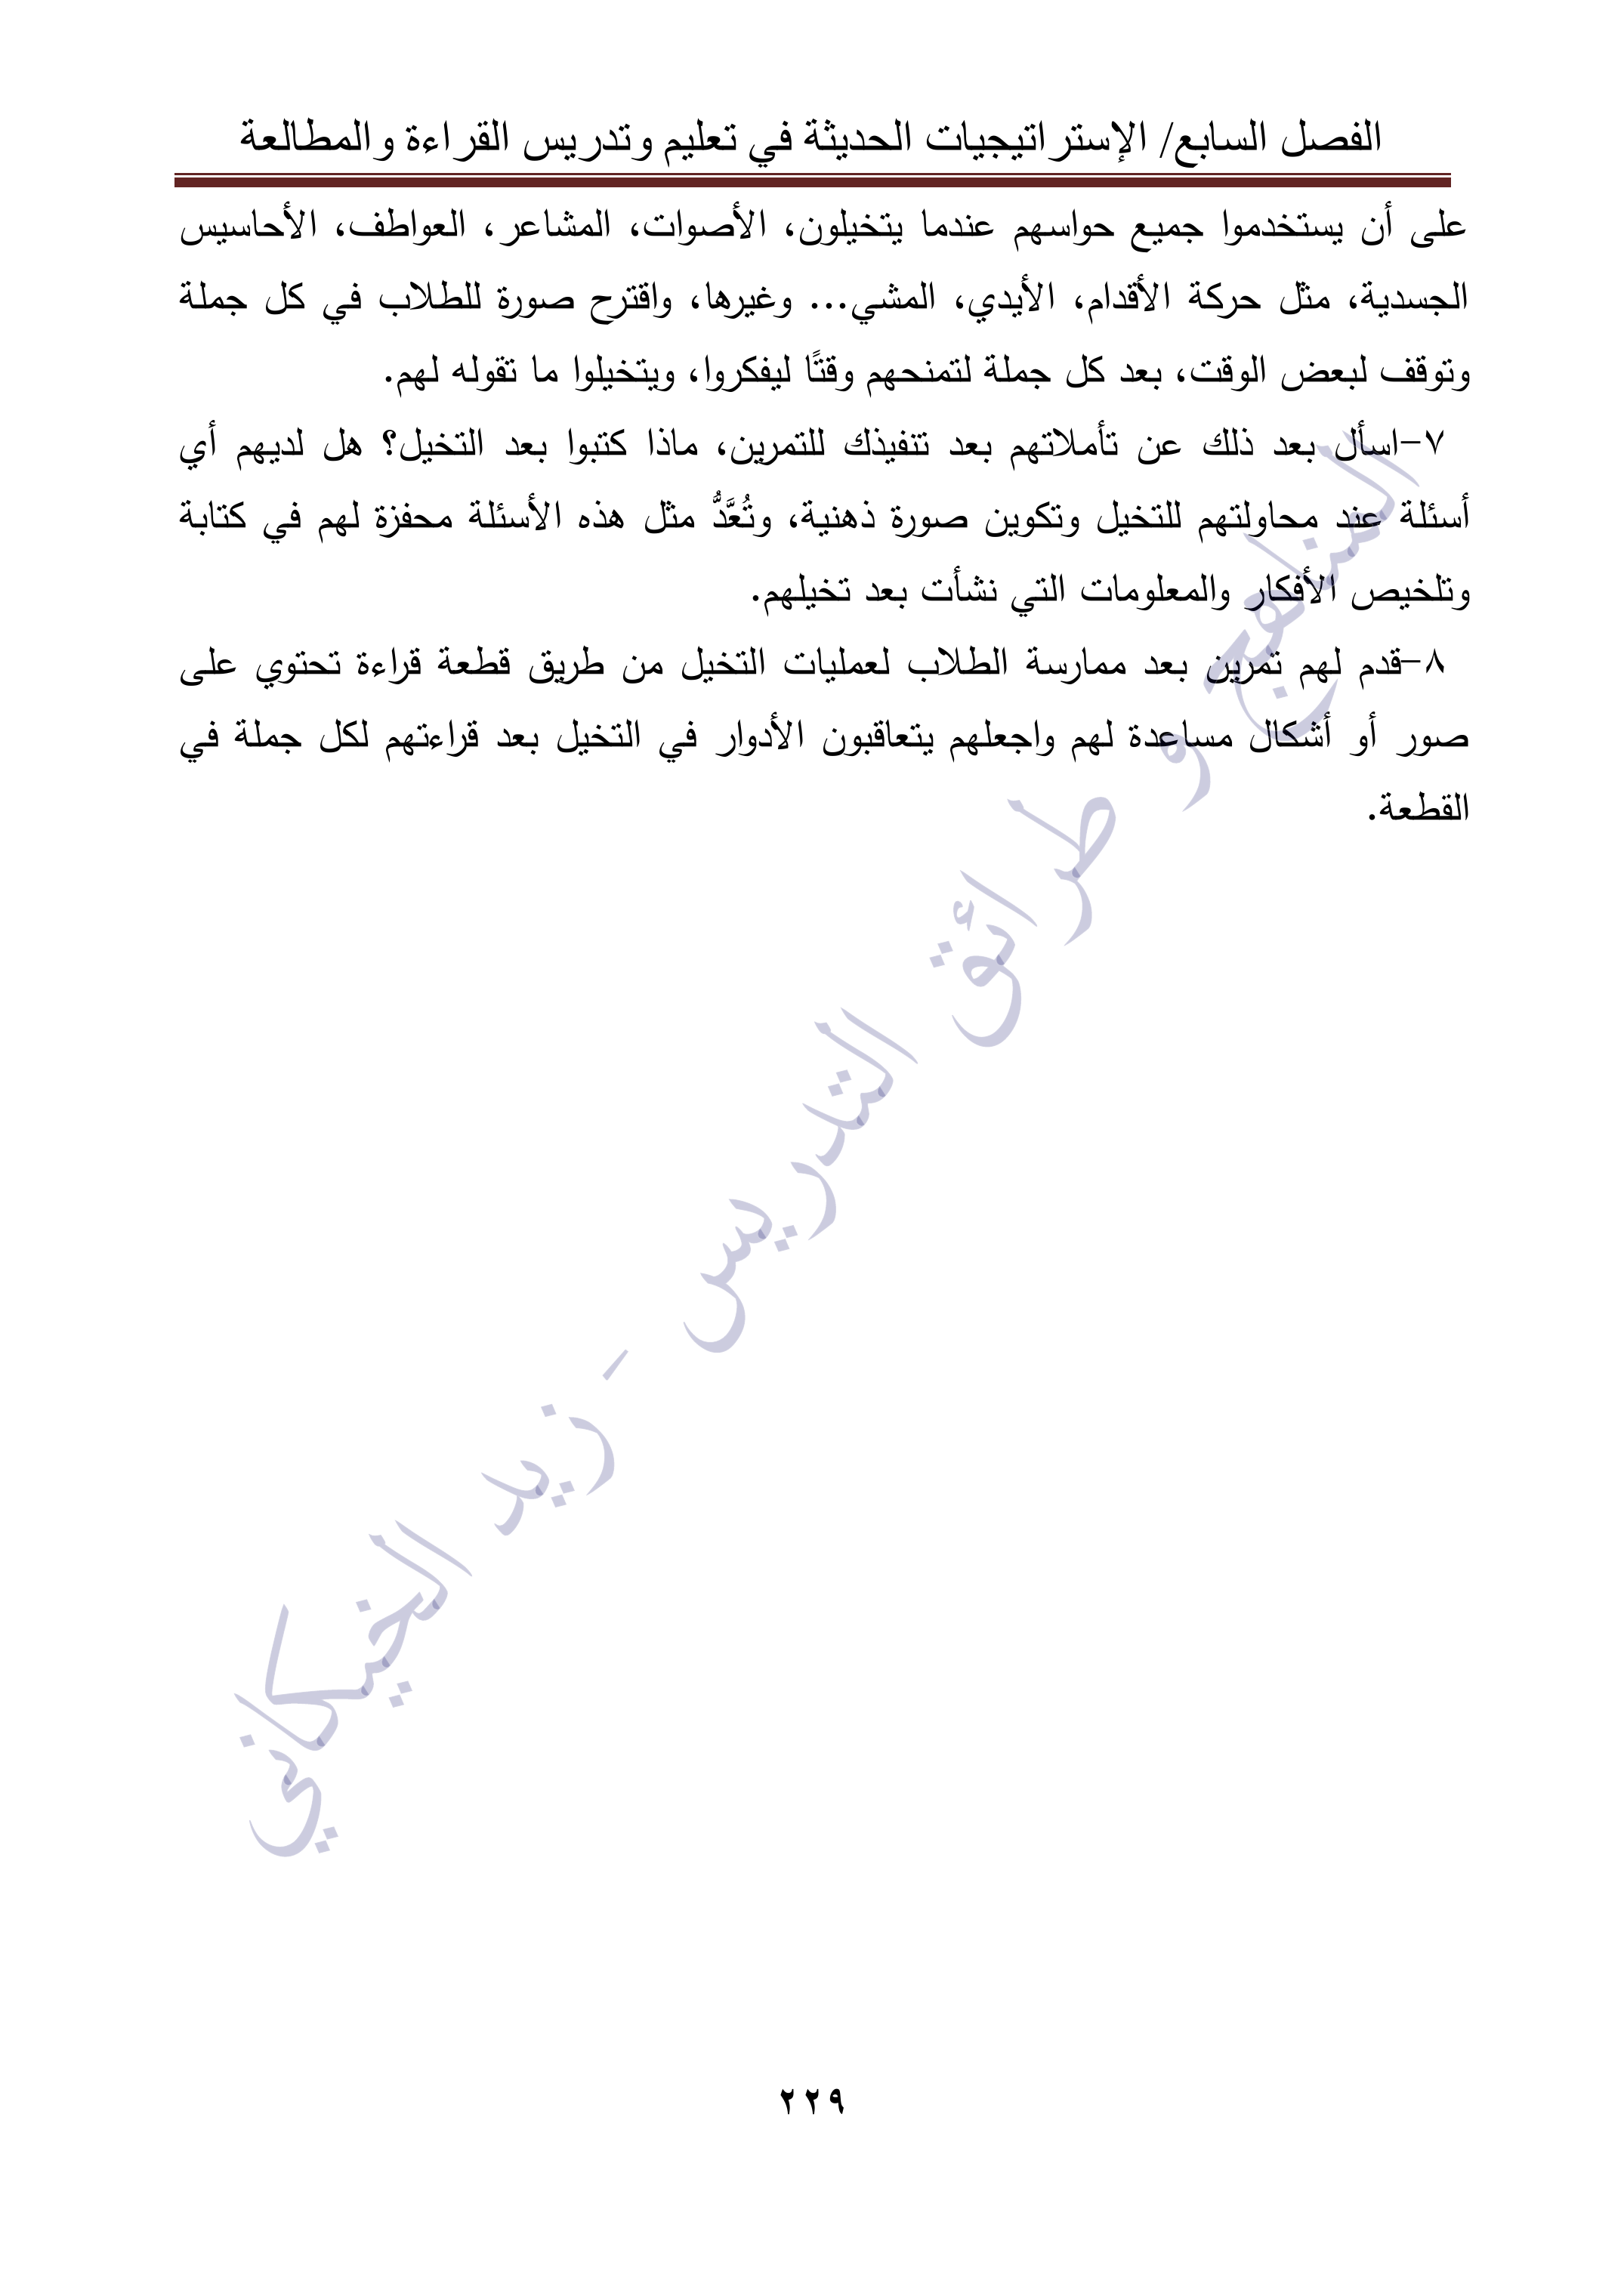 الفصل السابع/ الإستراتيجيات الحديثة في تعليم وتدريس القراءة والمطالعة
على أن يستخدموا جميع حواسهم عندما يتخيلون، الأصوات، المشاعر، العواطف، الأحاسيس
الجسدية، مثل حركة الأقدام، الأيدي، المشي... وغيرها، واقترح صورة للطلاب في كل جملة
وتوقف لبعض الوقت، بعد كل جملة لتمنحهم وقتًا ليفكروا، ويتخيلوا ما تقوله لهم.
٧-اسأل بعد ذلك عن تأملاتهم بعد تنفيذك للتمرين، ماذا كتبوا بعد التخيل؟ هل لديهم أي
أسئلة عند محاولتهم للتخيل وتكوين صورة ذهنية، وتُعَّدُّ مثل هذه الأسئلة محفزة لهم في كتابة
وتلخيص الأفكار والمعلومات التي نشأت بعد تخيلهم.
٨-قدم لهم تمرين بعد ممارسة الطلاب لعمليات التخيل من طريق قطعة قراءة تحتوي على
صور أو أشكال مساعدة لهم واجعلهم يتعاقبون الأدوار في التخيل بعد قراءتهم لكل جملة في
القطعة.
المناهج و طرائق التدريس - زيد الخيكاني
٢٢٩